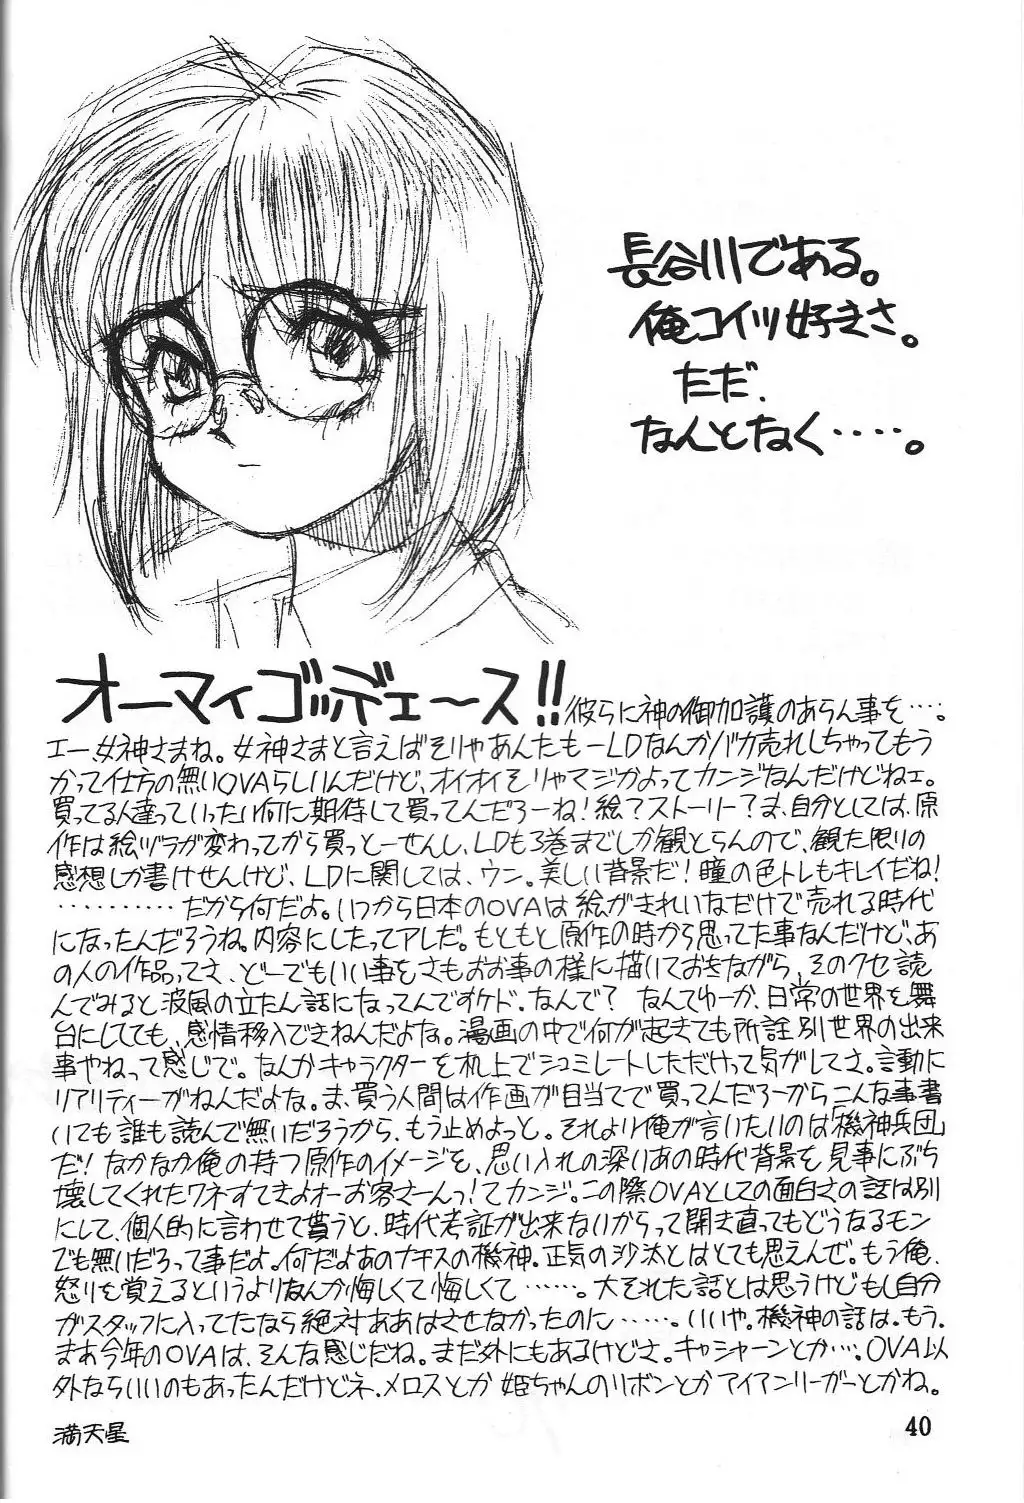 長谷川である。
俺コイツ好きさ。
ただ、
なんとなく‥‥。
オーマイゴッデェ〜ス!!彼らに神の御加護のあらん事を‥‥。
エー、女神さまね。女神さまと言えばそりゃあんたもーLDなんかバカ売れしちゃってもう
かって仕方の無いOVAらしいんだけど、オイオイそりゃマジかよってカンジなんだけどねェ。
買ってる人達っていったい何に期待して買ってんだろーね!絵?ストーリー?ま、自分としては、原
作は絵ヅラが変わってから買っとーせんし、LDも3巻までしか観とらんので、観た限りの
感想しか書けせんけど、LDに関しては、ウン。美しい背景だ!瞳の色トレもキレイだね!
‥‥‥‥‥だから何だよ。いつから日本のOVAは絵がきれいなだけで売れる時代
になったんだろうね。内容にしたってアレだ。もともと原作の時から思ってた事なんだけど、あ
の人の作品ってさ、どーでもいい事をさもおお事の様に描いておきながら、そのクセ読
んでみると波風の立たん話になってんですケド。なんで? なんてゆーか、日常の世界を舞
台にしてても、感情移入できねんだよな。漫画の中で何が起きても所詮別世界の出来
事やねって感じで。なんかキャラクターを机上でシュミレートしただけって気がしてさ。言動に
リアリティーがねんだよな。ま、買う人間は作画が目当てで買ってんだろーからこんな事書
いても誰も読んで無いだろうから、もう止めよっと。それより俺が言いたいのは「機神兵団」
だ!なかなか俺の持つ原作のイメージを、思い入れの深いあの時代背景を見事にぶち
壊してくれたワネすてきよオーお客さーんっ!てカンジ。この際OVAとしての面白さの話は別
にして、個人的に言わせて貰うと、時代考証が出来ないからって開き直ってもどうなるモン
でも無いだろって事だよ。何だよあのナチスの機神。正気の沙汰とはとても思えんぜ。もう俺、
怒りを覚えるというよりなんか悔しくて悔しくて‥‥‥。大それた話とは思うけどもし自分
がスタッフに入ってたなら絶対ああはさせなかったのに‥‥‥。いいや。機神の話は。もう。
まあ今年のOVAは、そんな感じだね。まだ外にもあるけどさ。キャシャーンとか‥‥。OVA以
外ならいいのもあったんだけどネ、メロスとか姫ちゃんのリボンとかアイアンリーガーとかね。
満天星
40